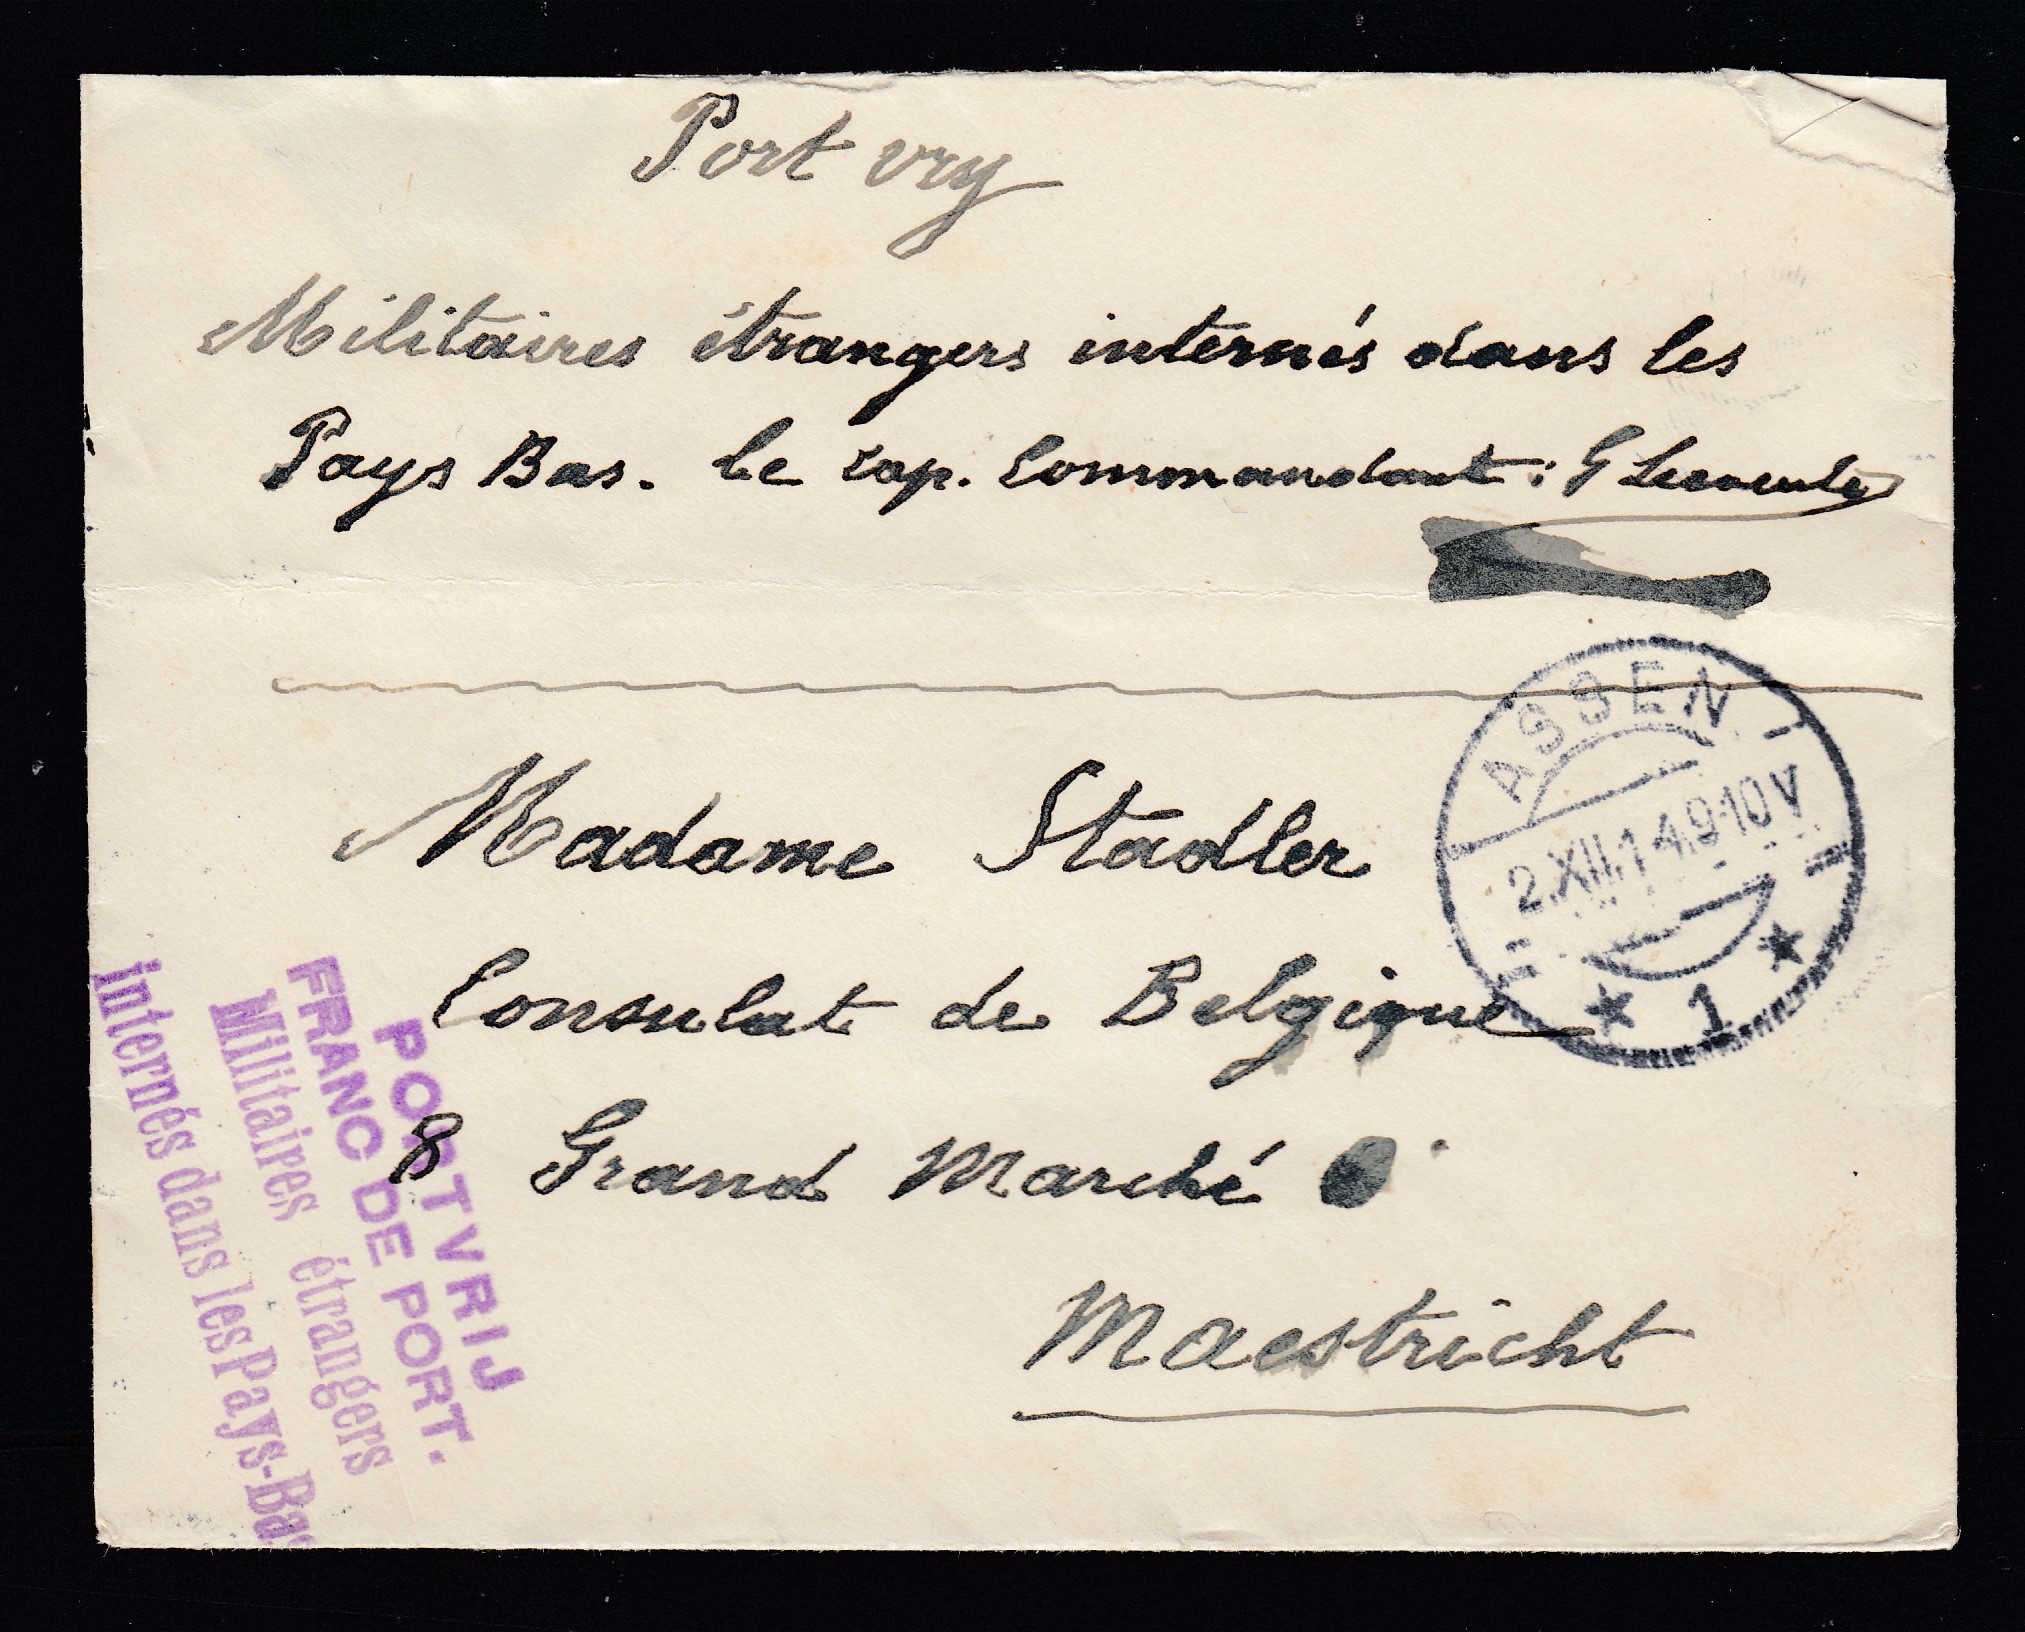 Port vry
Militaires étrangers internés dans les
Pays Bas. le cap. Commandant: G
ASSEN
2.XII.14.9-10V
1
Madame Stadler
Consulat de Belgique
8 Grand Marché
Maestricht
PORT VRIJ
FRANC DE PORT.
Militaires étrangers
internés dans les Pays-Bas